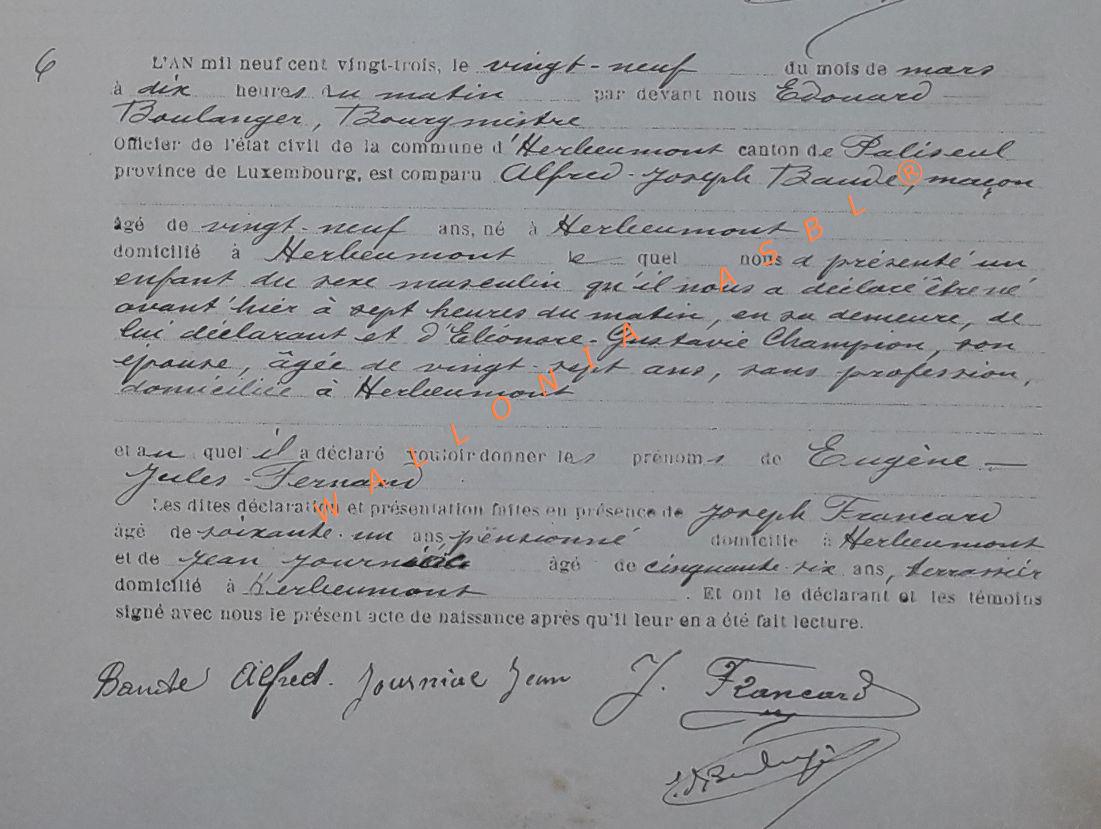 6
L'AN mil neuf cent vingt-trois, le vingt-neuf du mois de mars
à dix heures du matin par devant nous Edouard
Boulanger, Bourgmestre
Officier de l'état civil de la commune d'Herbeumont canton de Paliseul
province de Luxembourg, est comparu Alfred-Joseph Baude, maçon
âgé de vingt-neuf ans, né à Herbeumont
domicilié à Herbeumont lequel nous a présenté un
enfant du sexe masculin qu'il nous a déclaré être né
avant'hier à sept heures du matin, en sa demeure, de
lui déclarant et d'Eléonore-Gustavie Champion, son
épouse, âgée de vingt-sept ans, sans profession,
domiciliée à Herbeumont
et auquel il a déclaré vouloir donner les prénoms de Eugène-
Jules-Fernand
Les dites déclaration et présentation faites en présence de Joseph Francard
âgé de soixante-un ans pensionné domicilié à Herbeumont
et de Jean âgé de cinquante-six ans, terrassier
domicilié à Herbeumont. Et ont le déclarant et les témoins
signé avec nous le présent acte de naissance après qu'il leur en a été fait lecture.
Baude Alfred. Jean J. Francard
WALLONIA ASBL ®